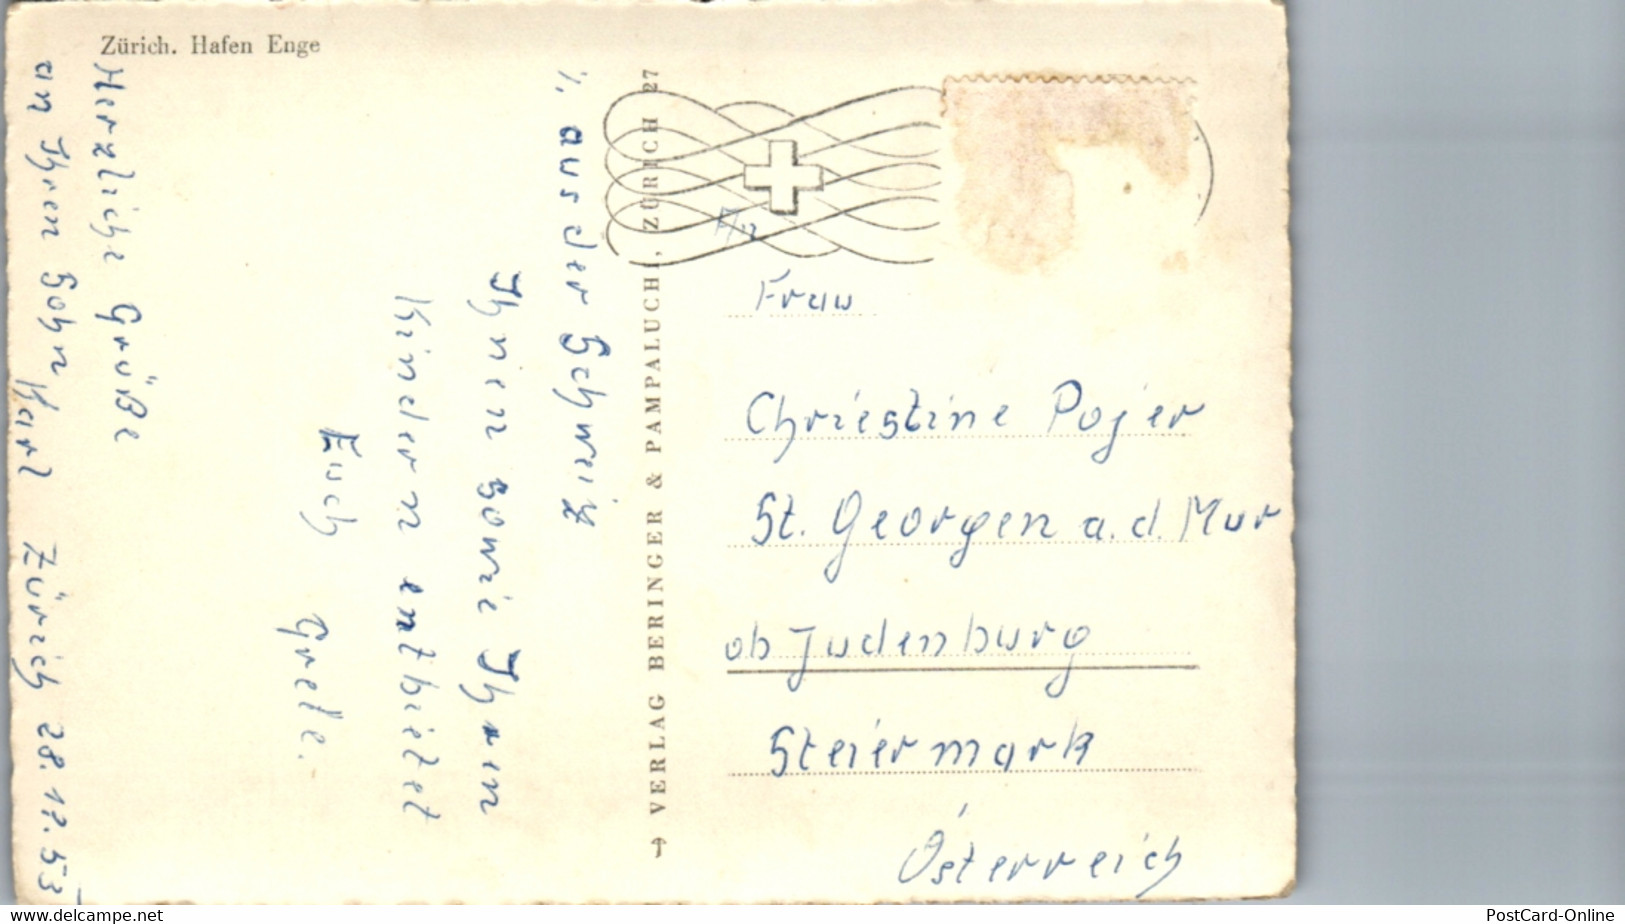 Zürich. Hafen Enge
Zürich 28.12.53
% aus der Schweiz
Ihnen sowie Ihren
Kindern entbietet
Euch Grete.
Herzliche Grüße
an Ihren Sohn Karl
VERLAG BERINGER & PAMPALUCHI, ZÜRICH 27
Frau
Chriestine Pojer
St. Georgen a. d. Mur
ob Judenburg
Steiermark
Österreich
www.delcampe.net
PostCard-Online